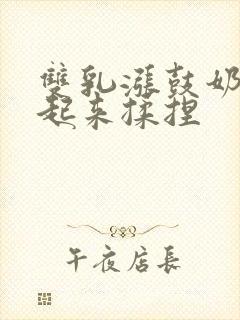 雙乳漲鼓奶
起来揉捏
午夜店長